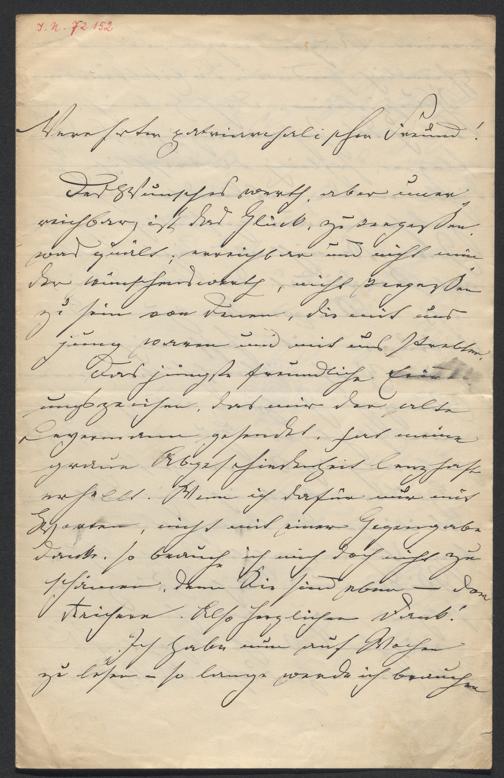 I. N. 72152
Verehrter patriarchalischer Freund!
Des Wunsches werth, aber uner
reichbar, ist das Glück, zu vergessen,
was quält; erreichbar und nicht min
der wünschenswerth, nicht vergessen
zu sein von denen, die mit uns
jung waren und mit uns strebten.
Das jüngste freundliche
ungszeichen, das mir der alte
gesendet, hat meine
graue Abgeschiedenheit lenzhaft
erhellt. Wenn ich dafür nur mit
Worten, nicht mit einer Gegengabe
danke, so brauche ich mich doch nicht zu
schämen, denn Sie sind eben — der
Reichere. Also herzlichen Dank!
Ich habe nun auf Wochen
zu lesen – so lange werde ich brauchen